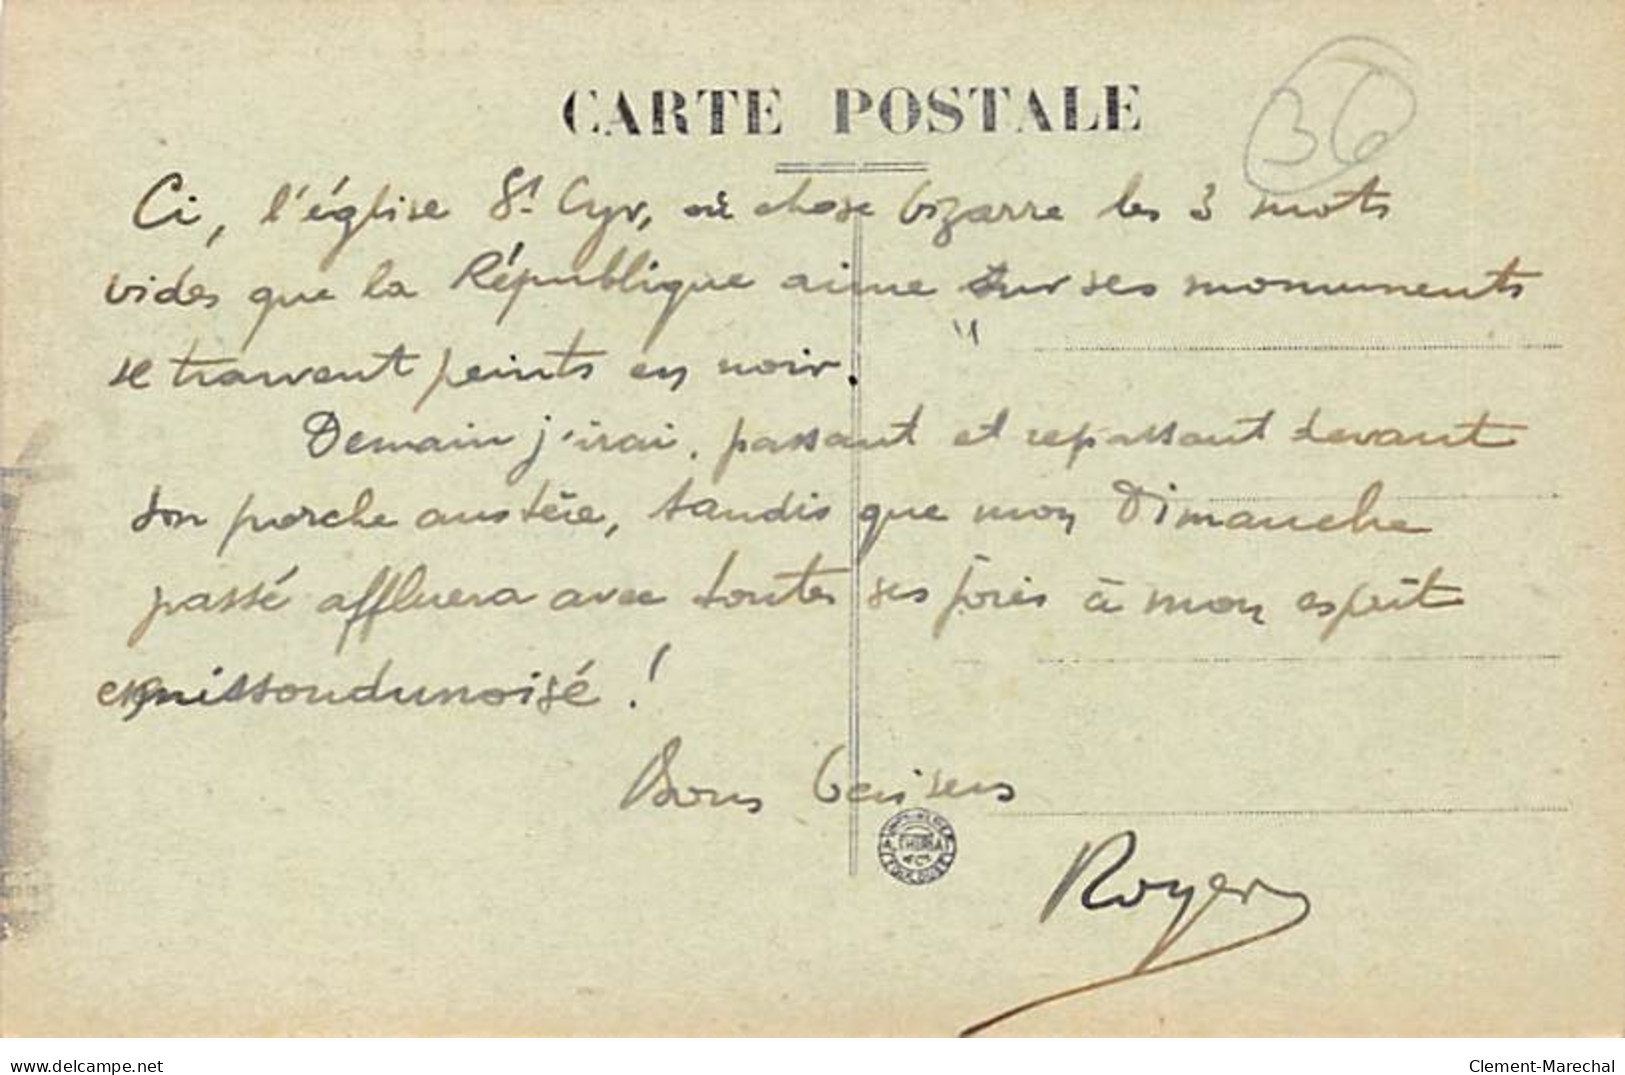 CARTE POSTALE
36
Ci, l'église St Cyr, où chose bizarre les 3 mots
vides que la République aime sur ses monuments
se trouvent peints en noir.
Demain j'irai, passant et repassant devant
son porche austère, tandis que mon Dimanche
passé affluera avec toutes ses joies à mon esprit
Bons baisers
Royer
delcampe.net
Clement-Marechal